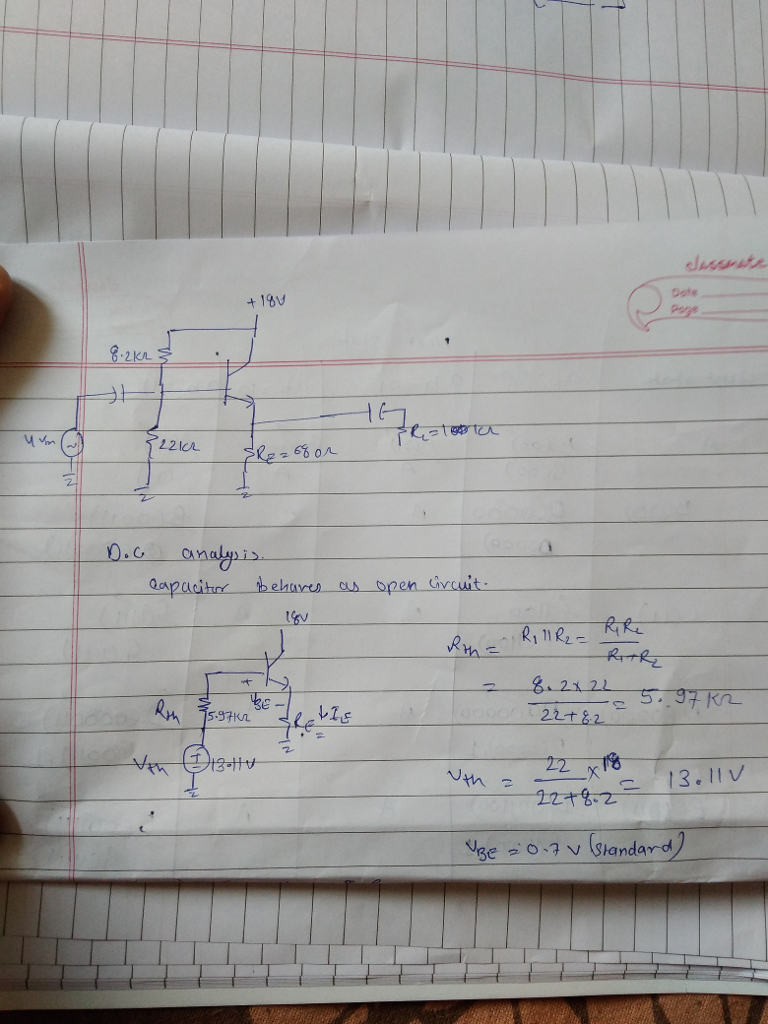 classmate
Date
Page
+18V
8.2kΩ
22kΩ
RE=680Ω
D.C analysis.
capacitor behaves as open circuit.
18V
Rth
5.97kΩ
VBE
+
-
RE
↓IE
Vth
13.11V
Rth = R1||R2 = R1R2 / R1+R2
= 8.2×22 / 22+8.2 = 5.97KΩ
Vth = 22 / 22+8.2 ×18 = 13.11V
VBE = 0.7 V (Standard)